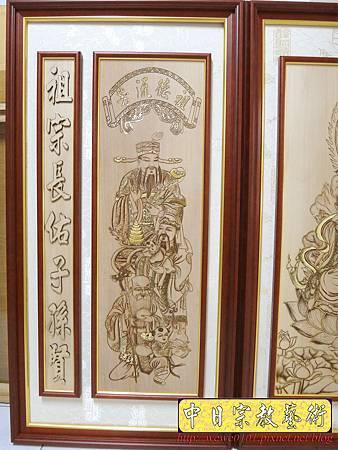 祖德流芳
祖宗長佑子孫賢
中日宗教藝術
http://wewe0101.pixnet.net/blog